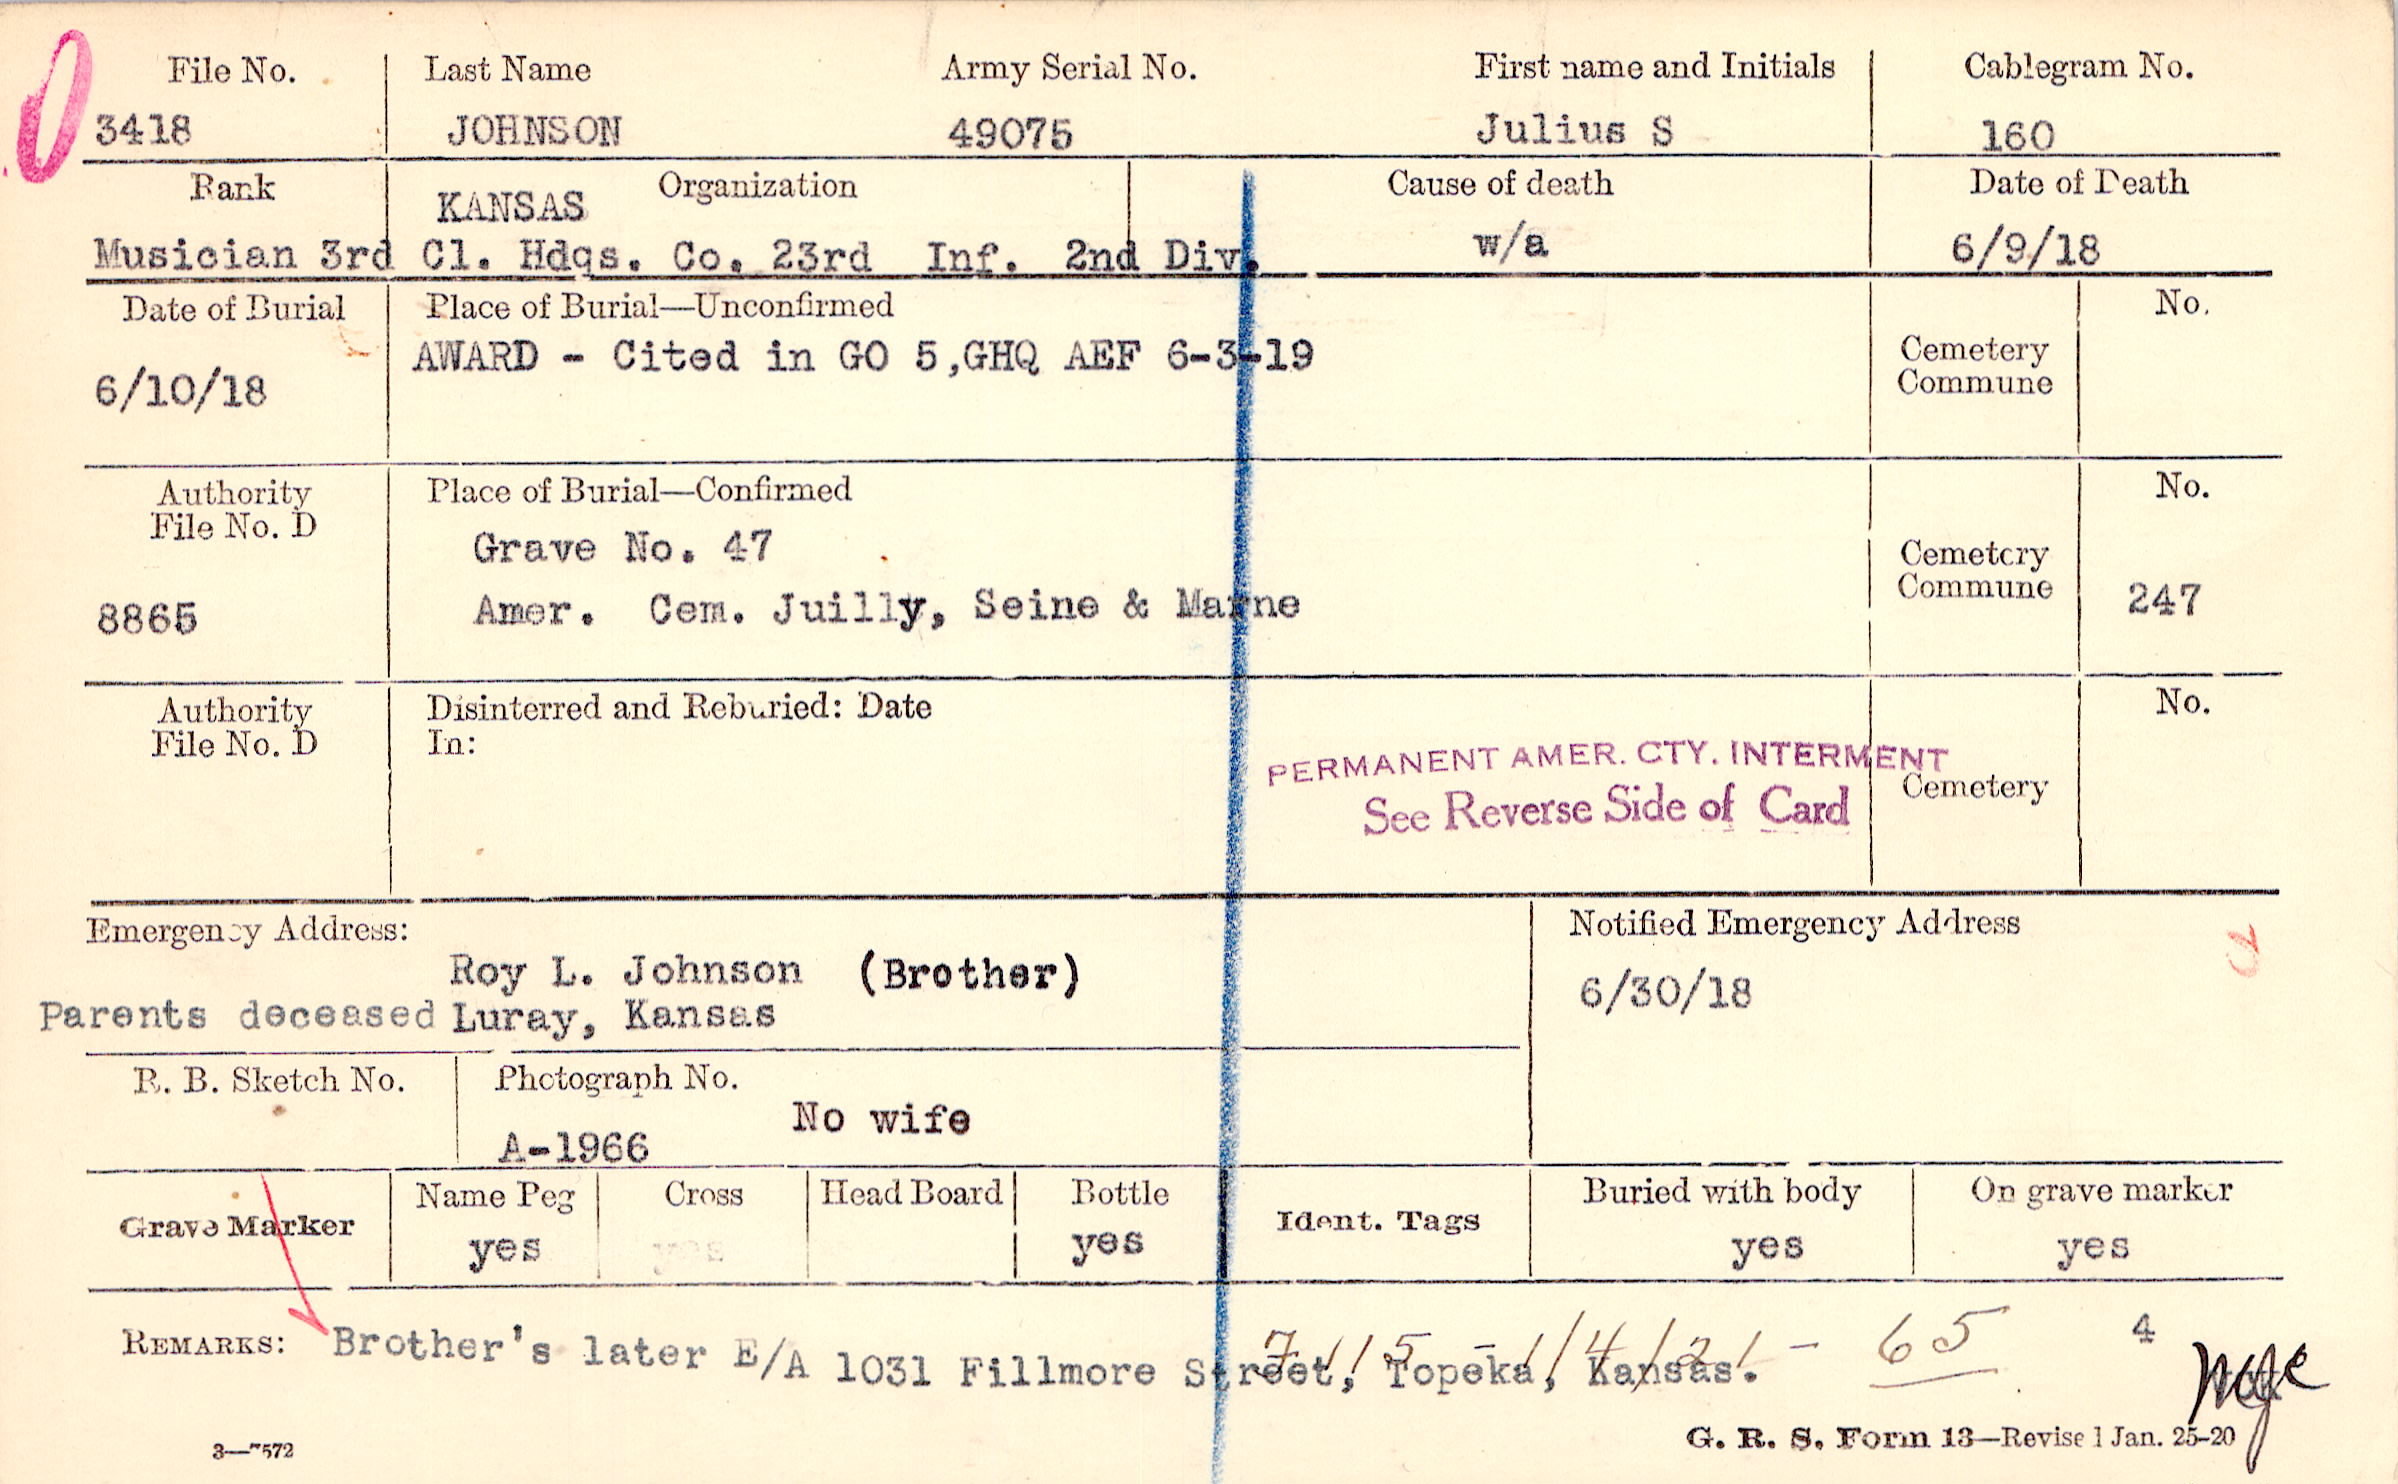 File No. Last Name Army Serial No. First name and Initials Cablegram No.
3418 JOHNSON 49075 Julius S 160
Rank Organization Cause of death Date of Death
KANSAS
Musician 3rd Cl. Hdqs. Co. 23rd Inf. 2nd Div. w/a 6/9/18
Date of Burial Place of Burial—Unconfirmed No.
AWARD - Cited in GO 5,GHQ AEF 6-3-19 Cemetery
6/10/18 Commune
Authority Place of Burial—Confirmed No.
File No. D
Grave No. 47 Cemetery
Commune
8865 Amer. Cem. Juilly, Seine & Marne 247
Authority Disinterred and Reburied: Date No.
File No. D In:
PERMANENT AMER. CTY. INTERMENT
See Reverse Side of Card Cemetery
Emergency Address: Notified Emergency Address
Roy L. Johnson (Brother) 6/30/18
Parents deceased Luray, Kansas
R. B. Sketch No. Photograph No.
No wife
A-1966
Grave Marker Name Peg Cross Head Board Bottle Ident. Tags Buried with body On grave marker
yes yes yes yes yes
65 4
REMARKS: Brother's later E/A 1031 Fillmore Street, Topeka, Kansas.
3—7572 G. R. S. Form 13—Revised Jan. 25-20